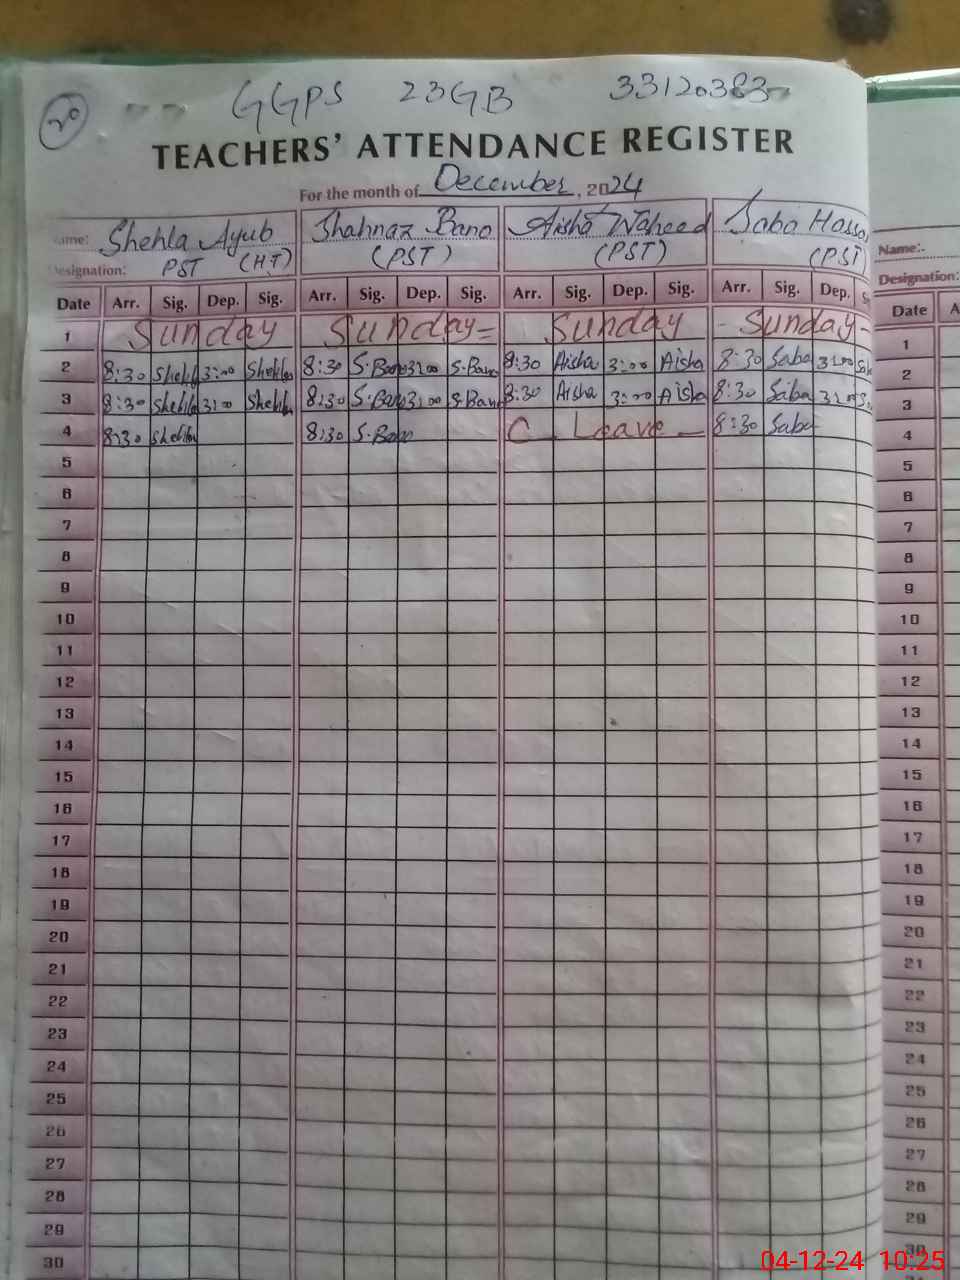 20
GGPS 23GB 33120383
TEACHERS' ATTENDANCE REGISTER
For the month of December, 2024
ame: Shehla Ayub Shahnaz Bano Aisha Waheed Saba Hassa
Designation: PST (H.T) (PST) (PST) (PST)
Date Arr. Sig. Dep. Sig. Arr. Sig. Dep. Sig. Arr. Sig. Dep. Sig. Arr. Sig. Dep. S
1 Sunday Sunday = Sunday - Sunday -
2 8:30 Shehla 3:00 Shehla 8:30 S.Bano 3:00 S.Bano 8:30 Aisha 3:00 Aisha 8:30 Saba 3:00 Sab
3 8:30 Shehla 3:00 Shehla 8:30 S.Bano 3:00 S.Bano 8:30 Aisha 3:00 Aisha 8:30 Saba 3:00 S
4 8:30 Shehla 8:30 S.Bano C Leave 8:30 Saba
5
6
7
8
9
10
11
12
13
14
15
16
17
18
19
20
21
22
23
24
25
26
27
28
29
30
Name:-
Designation:
Date A
1
2
3
4
5
6
7
8
9
10
11
12
13
14
15
16
17
18
19
20
21
22
23
24
25
26
27
28
29
30
04-12-24 10:25